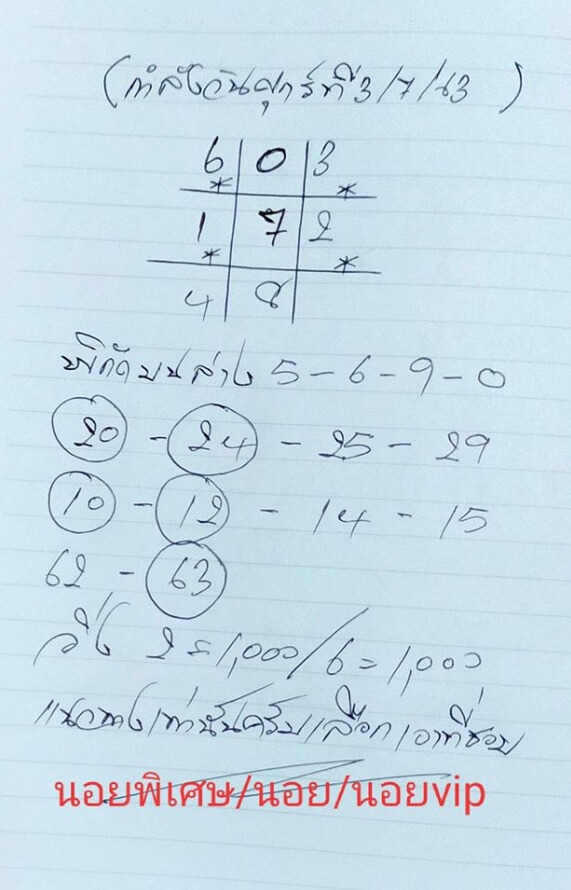 (กำลังวันศุกร์ที่ 3/7/63)
6 0 3
* *
1 7 2
* *
4 8
พิกัดบนล่าง 5-6-9-0
20 - 24 - 25 - 29
10 - 12 - 14 - 15
62 - 63
วิ่ง 2=1,000/6=1,000
แนวทางเท่านั้นครับเลือกเอาที่ชอบ
นอยพิเศษ/นอย/นอยvip